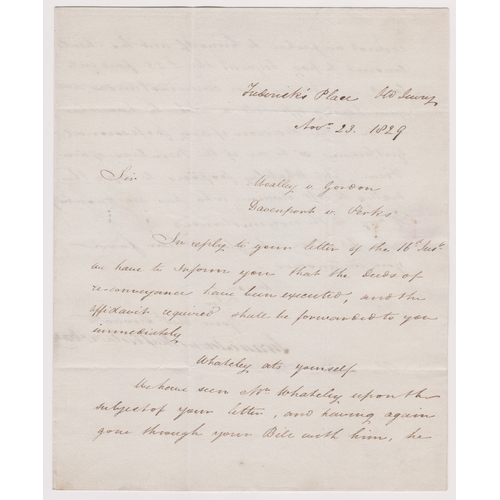 Frederick's Place Old Jewry
Nov. 23. 1829
Sir
Woolley v Gordon
Davenport v. Parks
In reply to your letter of the 16 Inst.
we have to inform you that the deeds of
re-conveyance have been executed, and the
affidavit required shall be forwarded to you
immediately
Whateley ats yourself
We have seen Mr. Whateley upon the
subject of your letter, and having again
gone through your Bill with him, he